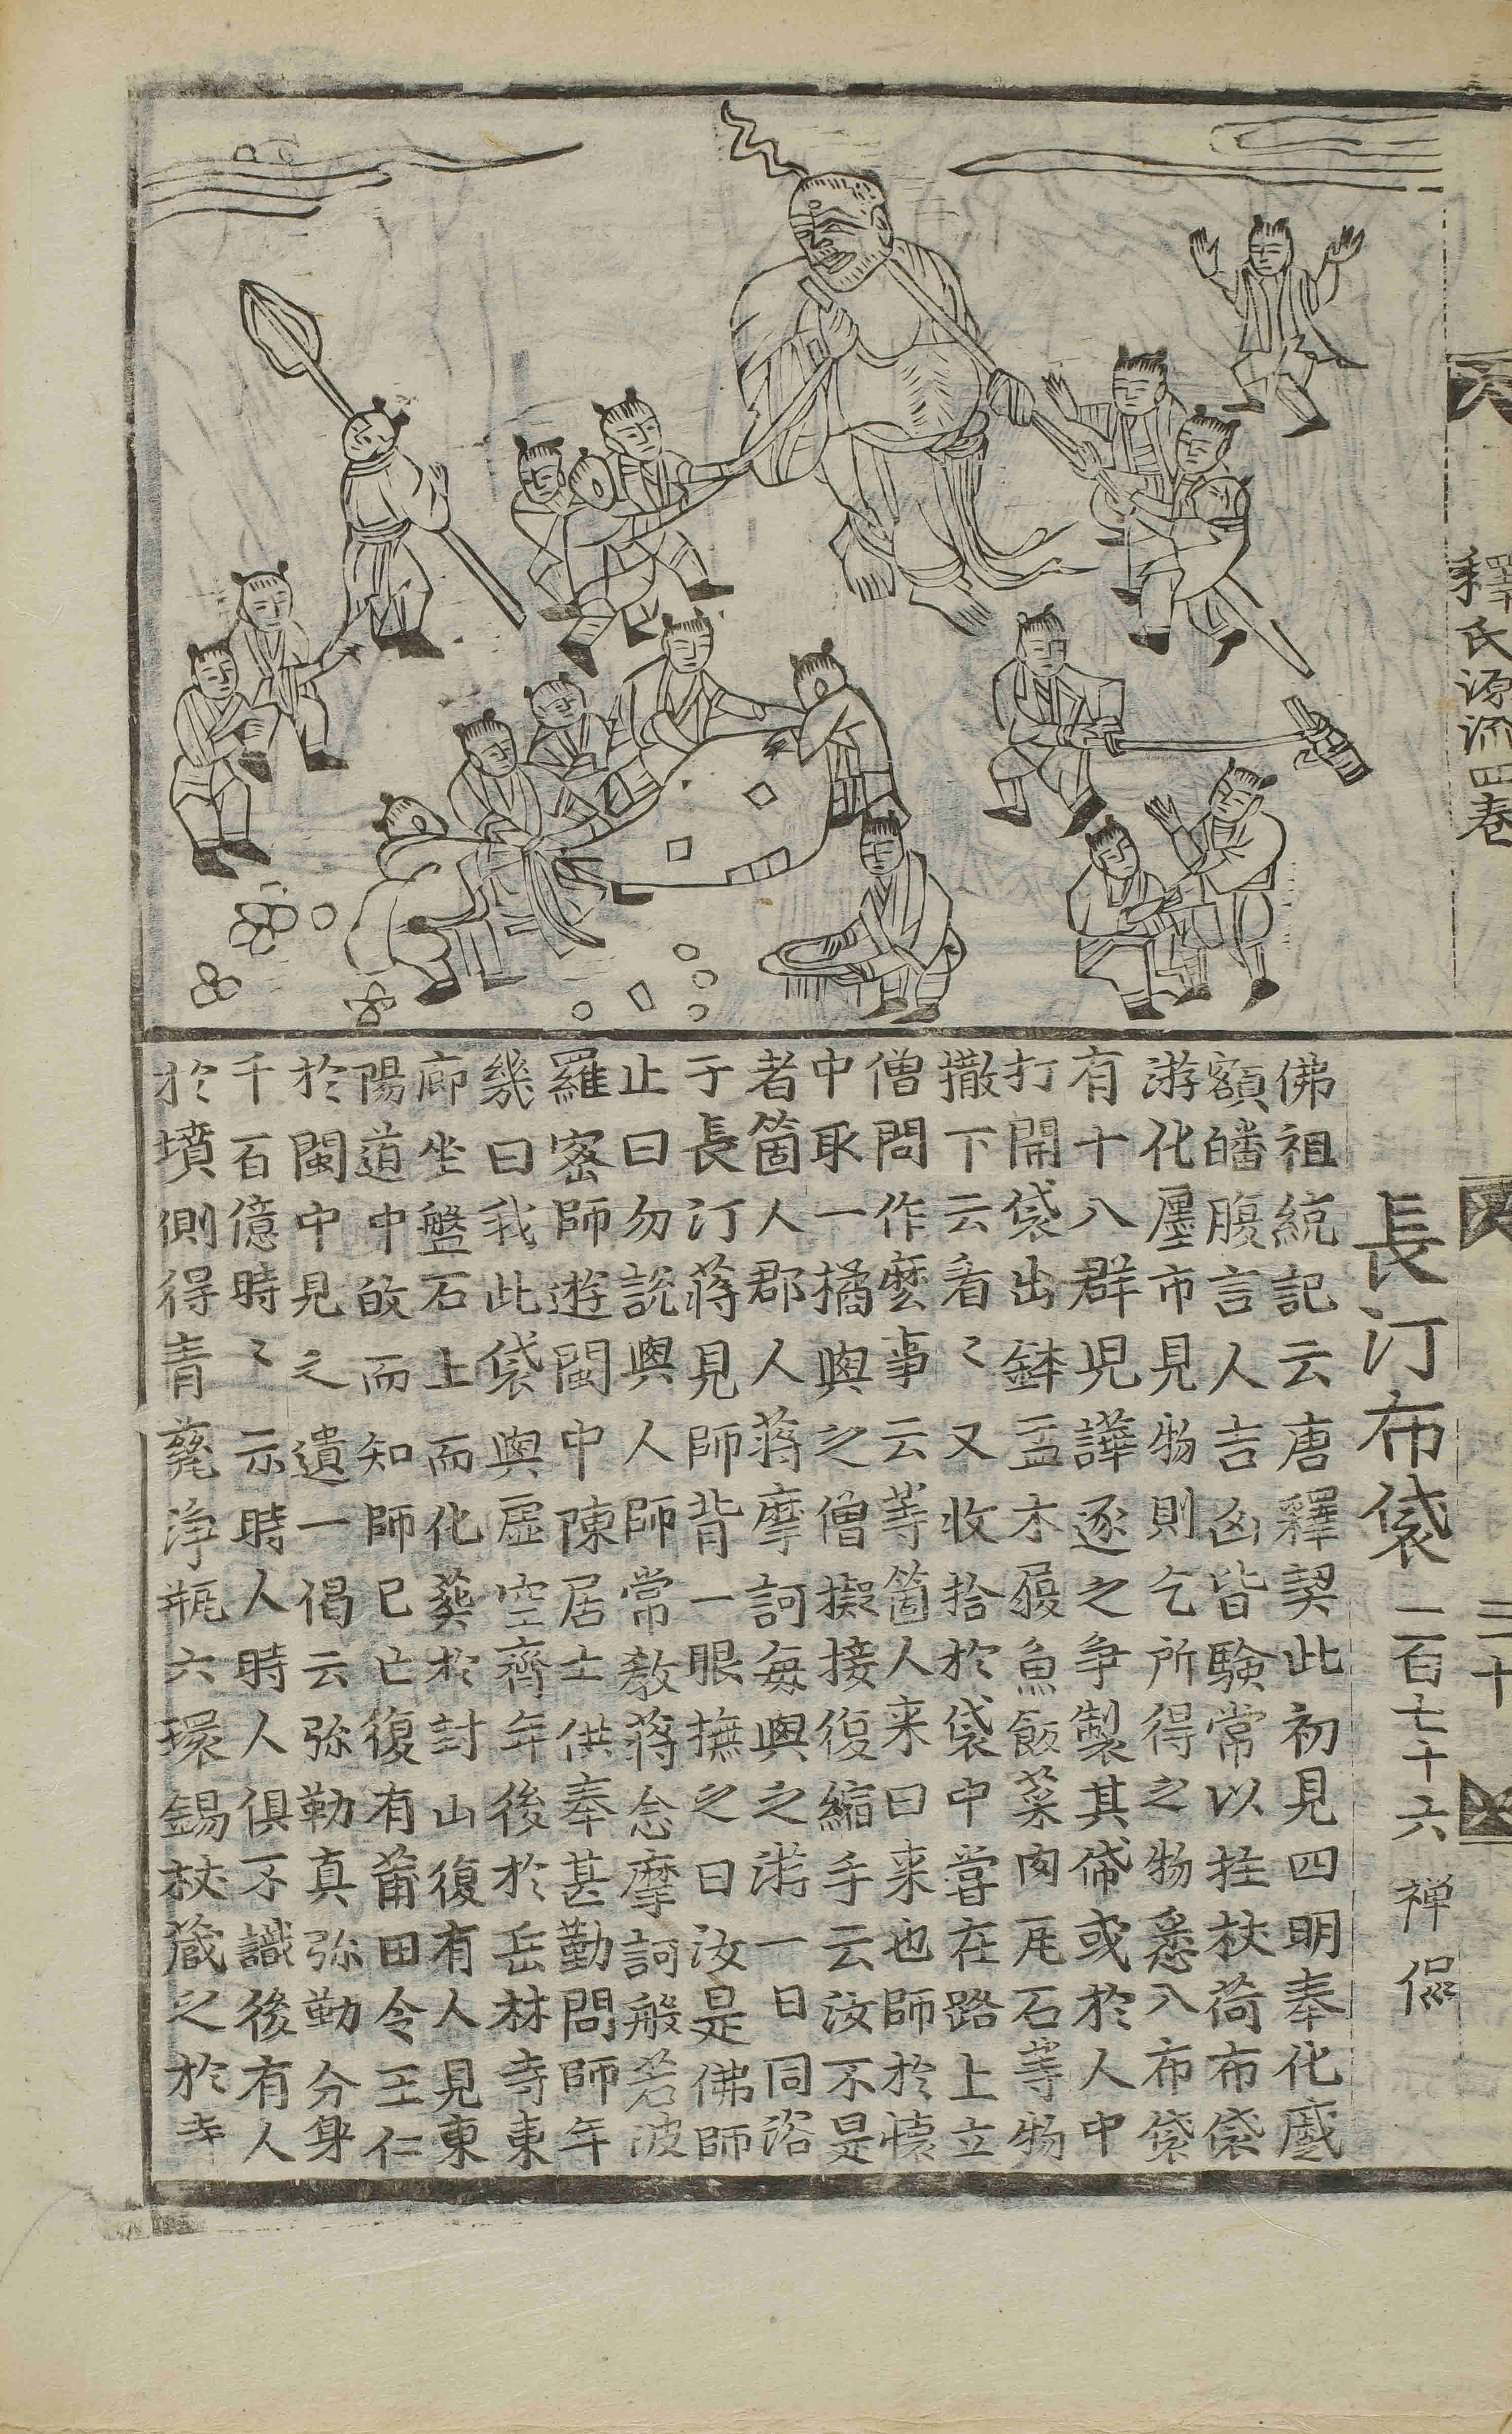 釋氏源流四卷 三十
長汀布袋 二百七十六 禅
佛祖統記云唐釋契此初見四明奉化蹙
額皤腹言人吉凶皆驗常以拄杖荷布袋
游化廛市見物則乞所得之物悉入布袋
有十八群児譁逐之争製其帒或於人中
打開袋出鉢盂木履魚飯菜肉瓦石等物
撒下云看〻又收拾於袋中甞在路上立
僧問作麼事云等箇人来曰来也師於懐
中取一橘與之僧擬接復縮手云汝不是
者箇人郡人蔣摩訶每與之游一日同浴
于長汀蔣見師背一眼撫之曰汝是佛師
止曰勿說與人師常教蔣念摩訶般若波
羅密師遊閩中陳居士供奉甚勤問師年
幾曰我此袋與虛空齊年後於岳林寺東
廊坐盤石上而化葬於封山復有人見東
陽道中故而知師已亡復有莆田令王仁
於閩中見之遺一偈云弥勒真弥勒分身
千百億時〻示時人時人俱不識後有人
於墳側得青甆淨瓶六環錫杖藏之於寺